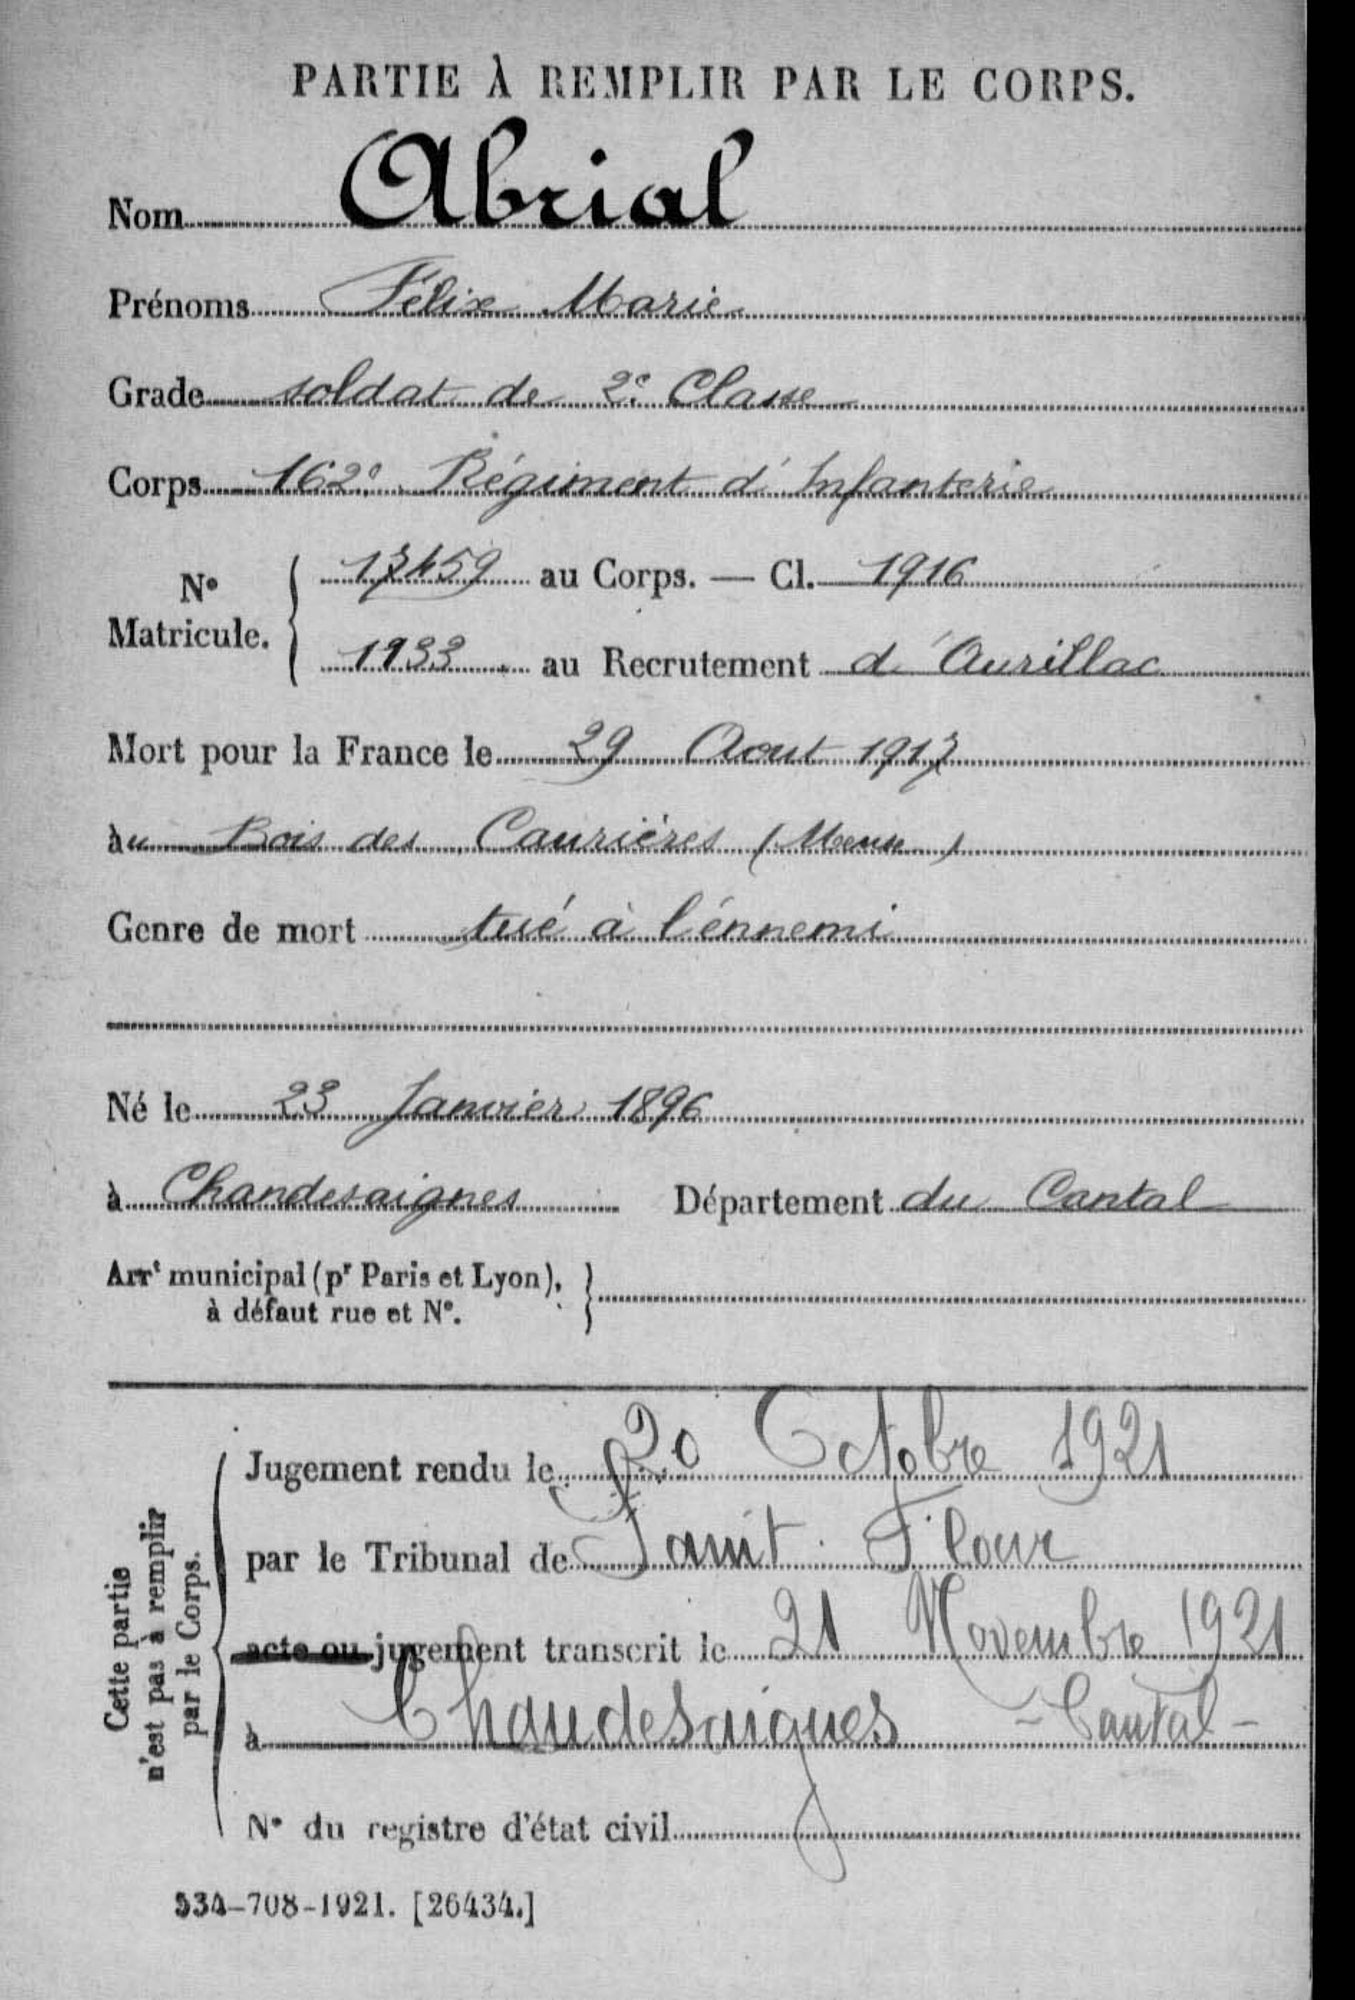 PARTIE À REMPLIR PAR LE CORPS.
Nom Abrial
Prénoms Félix Marie
Grade soldat de 2e Classe
Corps 162e Régiment d'Infanterie
No Matricule. { 17459 au Corps. — Cl. 1916
1933 au Recrutement d'Aurillac
Mort pour la France le 29 Aout 1917
au Bois des Caurières (Meuse)
Genre de mort tué à l'énnemi
Né le 23 Janvier 1896
à Chandesaignes Département du Cantal
Arrt municipal (pr Paris et Lyon),
à défaut rue et No.
Cette partie
n'est pas à remplir
par le Corps.
Jugement rendu le 20 Octobre 1921
par le Tribunal de Saint Flour
acte ou jugement transcrit le 21 Novembre 1921
à Chaudesaigues - Cantal -
No du registre d'état civil
534-708-1921. [26434.]